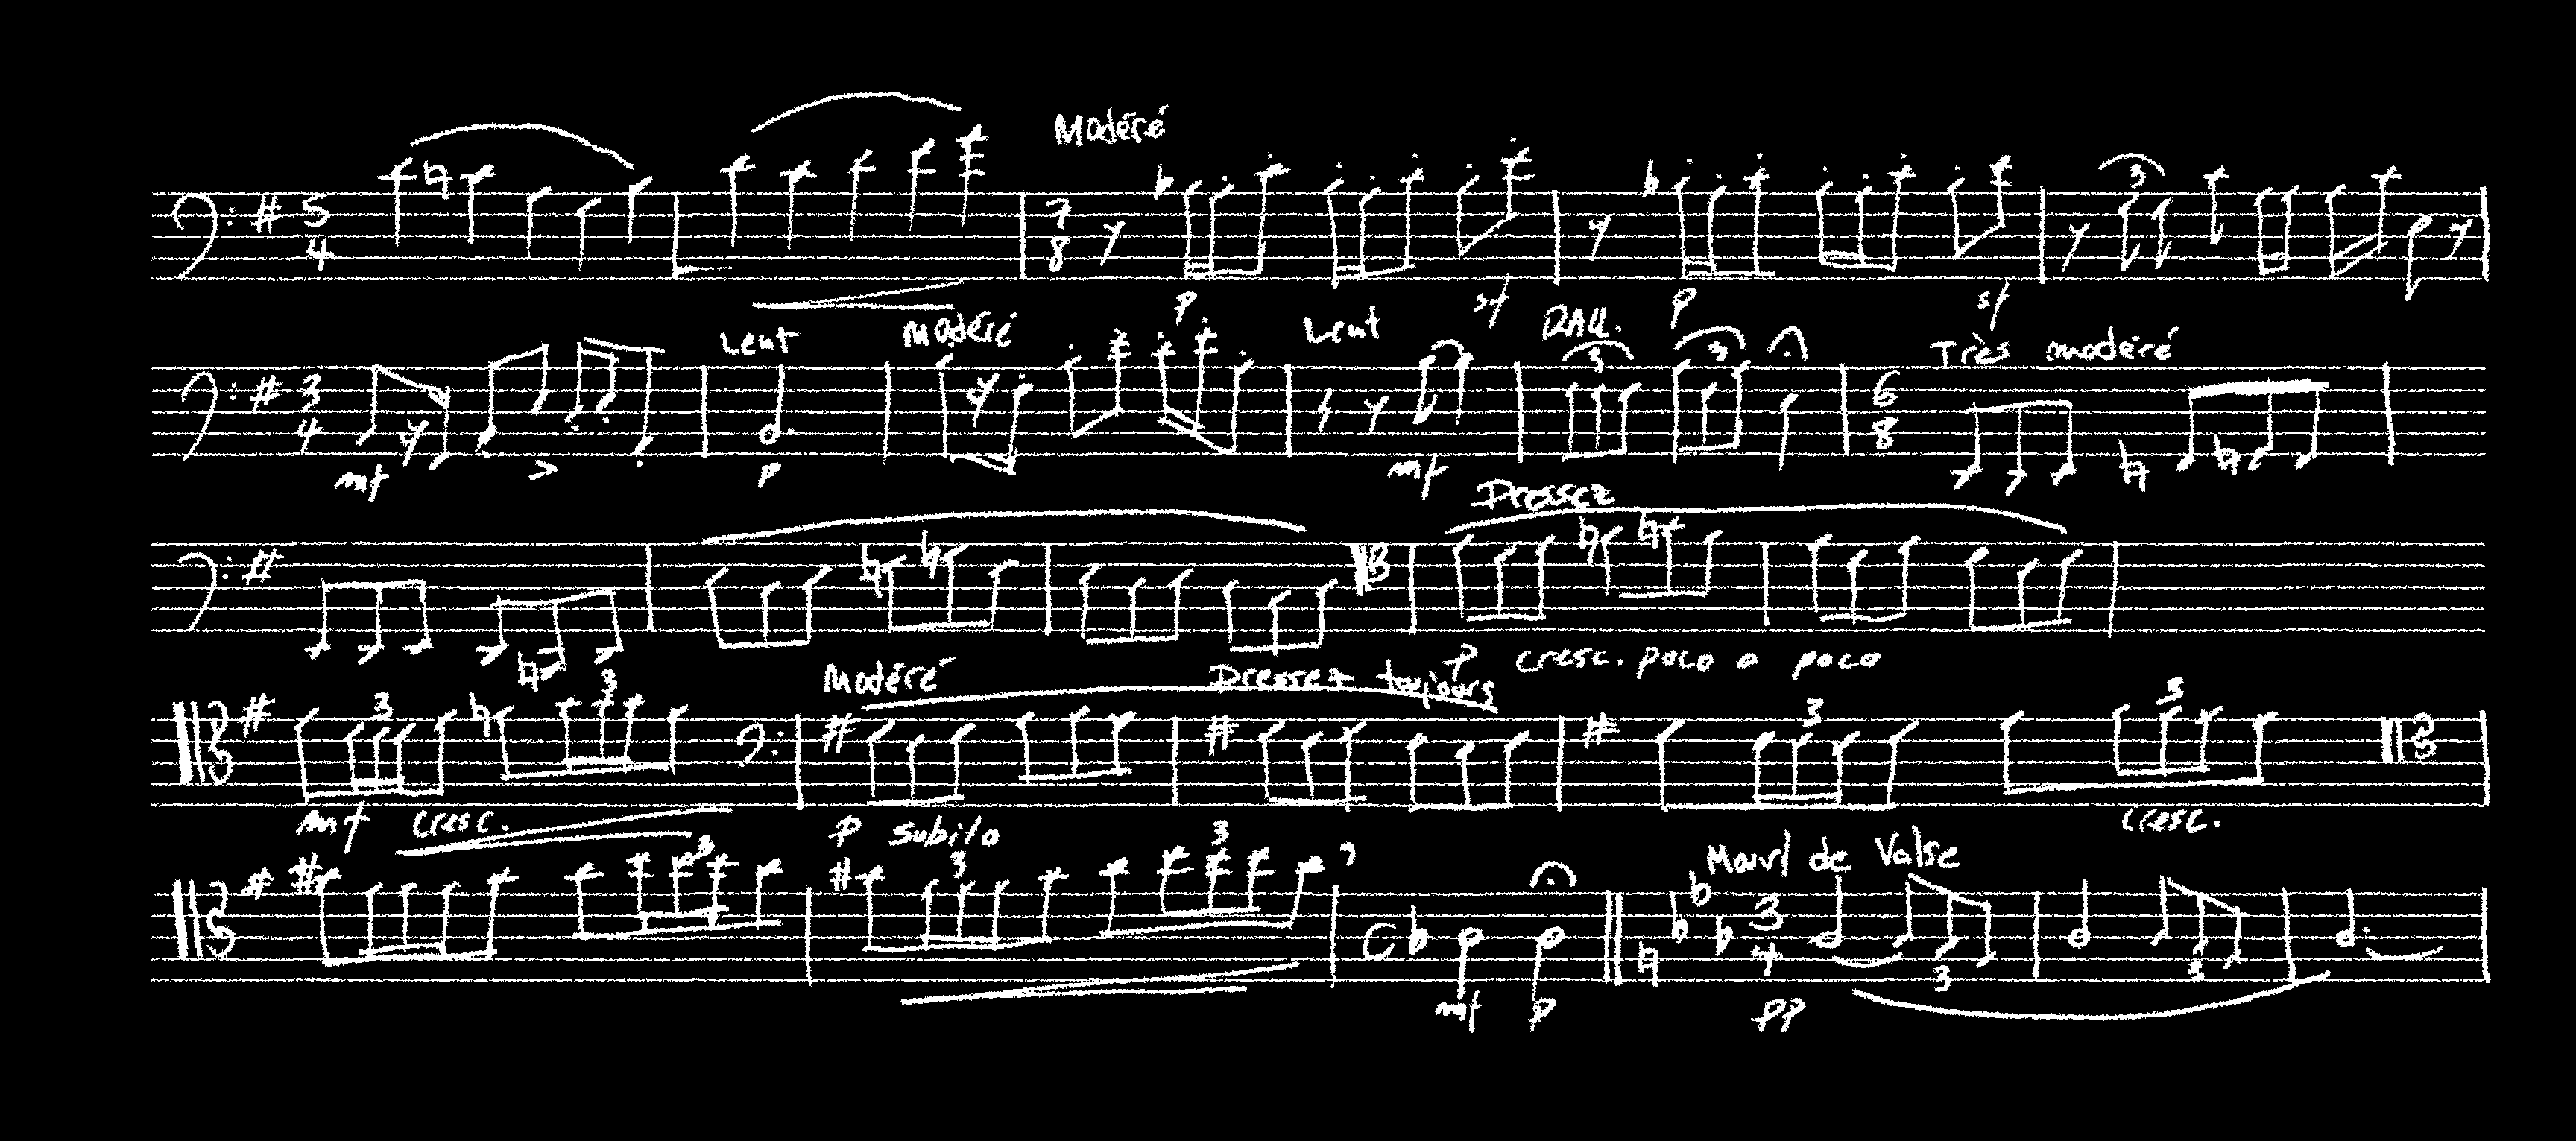 Modéré
5 4 7 8 3
p sf p sf
Lent Modéré Lent RALL. Très modéré
3 4 3 3 6 8
mf > p mf
Pressez
p cresc. poco a poco
Modéré Pressez toujours
3 3 3 3
mf cresc. p subito cresc.
Mouvt de Valse
3 3 3 C 3 4 3 3
mf p pp